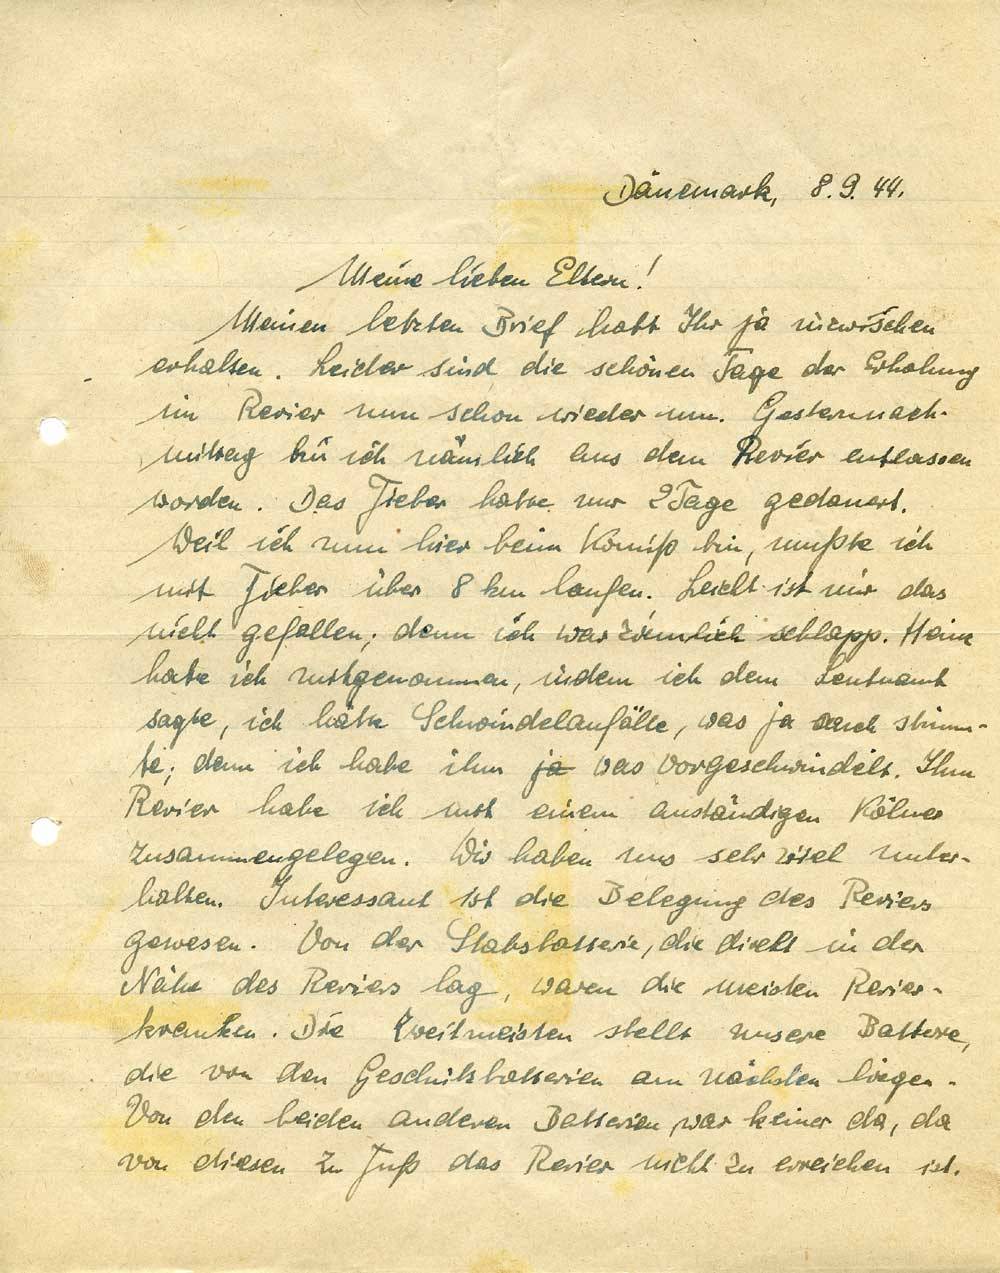 Dänemark, 8.9.44.
Meine lieben Eltern!
Meinen letzten Brief habt Ihr ja inzwischen
erhalten. Leider sind die schönen Tage der Erholung
im Revier nun schon wieder um. Gesternnach-
mittag bin ich nämlich aus dem Revier entlassen
worden. Das Fieber hatte nur 2 Tage gedauert.
Weil ich nun hier beim Komiß bin, mußte ich
mit Fieber über 8 km laufen. Leicht ist mir das
nicht gefallen; denn ich war ziemlich schlapp. Heinz
habe ich mitgenommen, indem ich dem Leutnant
sagte, ich hätte Schwindelanfälle, was ja auch stimm-
te; denn ich habe ihm ja was vorgeschwindelt. Ihm
Revier habe ich mit einem anständigen Kölner
zusammengelegen. Wir haben uns sehr viel unter-
halten. Interessant ist die Belegung des Reviers
gewesen. Von der Stabsbatterie, die direkt in der
Nähe des Reviers lag, waren die meisten Revier-
kranken. Die Zweitmeisten stellt unsere Batterie,
die von den Geschützbatterien am nächsten liegen.
Von den beiden anderen Batterien war keiner da, da
von diesen zu Fuß das Revier nicht zu erreichen ist.